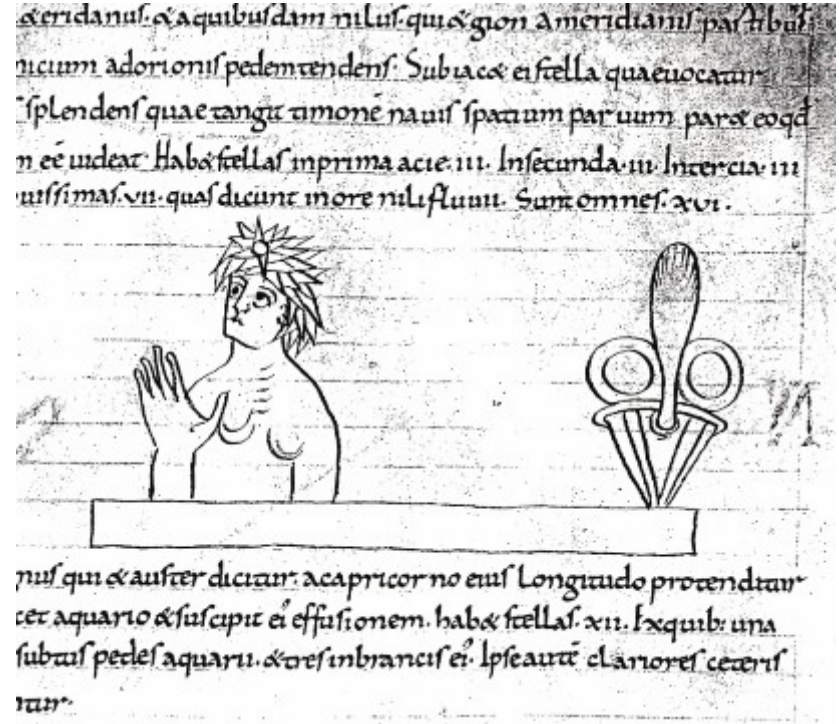 &eridanus. & aquibusdam nilus. qui & gion ameridianis partibus
nicium adorionis pedem tendens. Subiac& ei stella quae uocatur
splendens quae tangit timonē nauis spatium paruum par& eoqđ
m eē uideat. Hab& stellas inprima acie .iii. Insecunda .iii. Intercia .iii
uissimas .vii. quas dicunt inore nili fluuii. Sunt omnes .xvi.
nus qui & auster dicitur. acapricorno eius Longitudo protenditur
cet aquario & suscipit ei effusionem. hab& stellas .xii. Exquib: una
subtus pedes aquarii. & tres inbrancis ei. Ipse autē clariores ceteris
ntur.